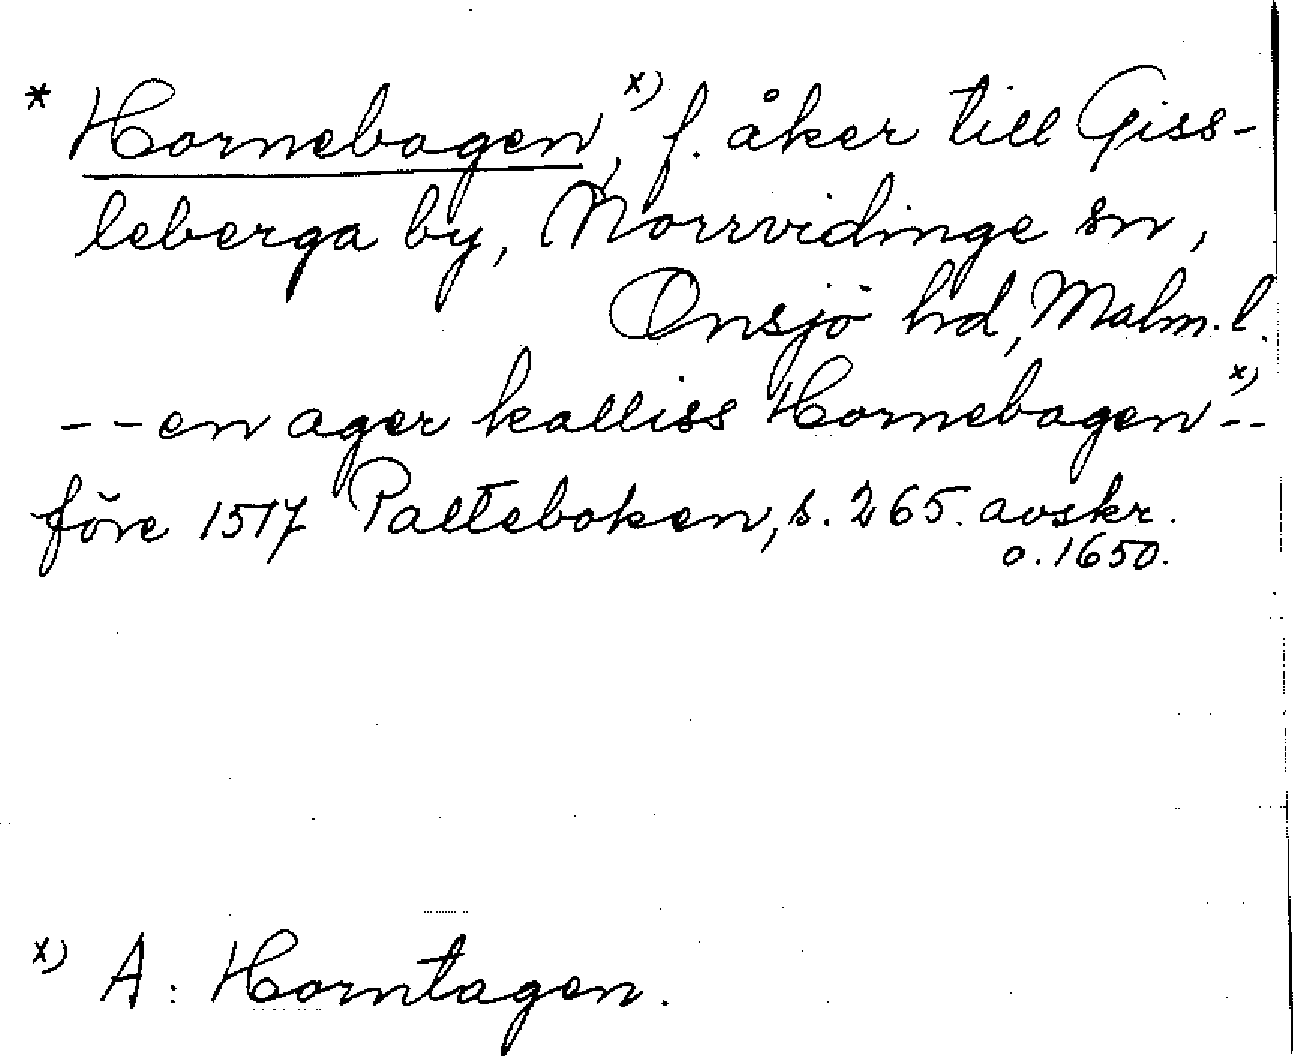 * Hornebagen,x) f. åker till Giss-
leberga by, Norrvidinge sn,
Onsjö hd, Malm. l.
-- en ager kalliss Hornebagen x)--
före 1517 Palteboken, s. 265. avskr.
o. 1650.
x) A: Horntagen.